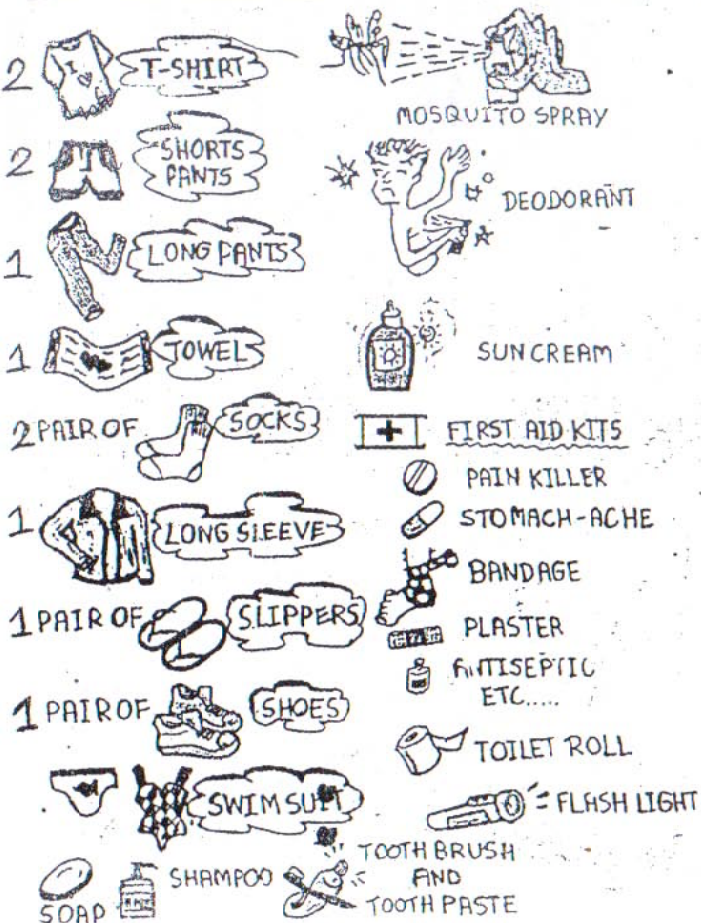 2 T-SHIRT
2 SHORTS
PANTS
1 LONG PANTS
1 TOWEL
2 PAIR OF SOCKS
1 LONG SLEEVE
1 PAIR OF SLIPPERS
1 PAIR OF SHOES
SWIM SUIT
SOAP
SHAMPOO
TOOTH BRUSH
AND
TOOTH PASTE
MOSQUITO SPRAY
DEODORANT
SUN CREAM
FIRST AID KITS
PAIN KILLER
STOMACH-ACHE
BANDAGE
PLASTER
ANTISEPTIC
ETC.....
TOILET ROLL
FLASH LIGHT